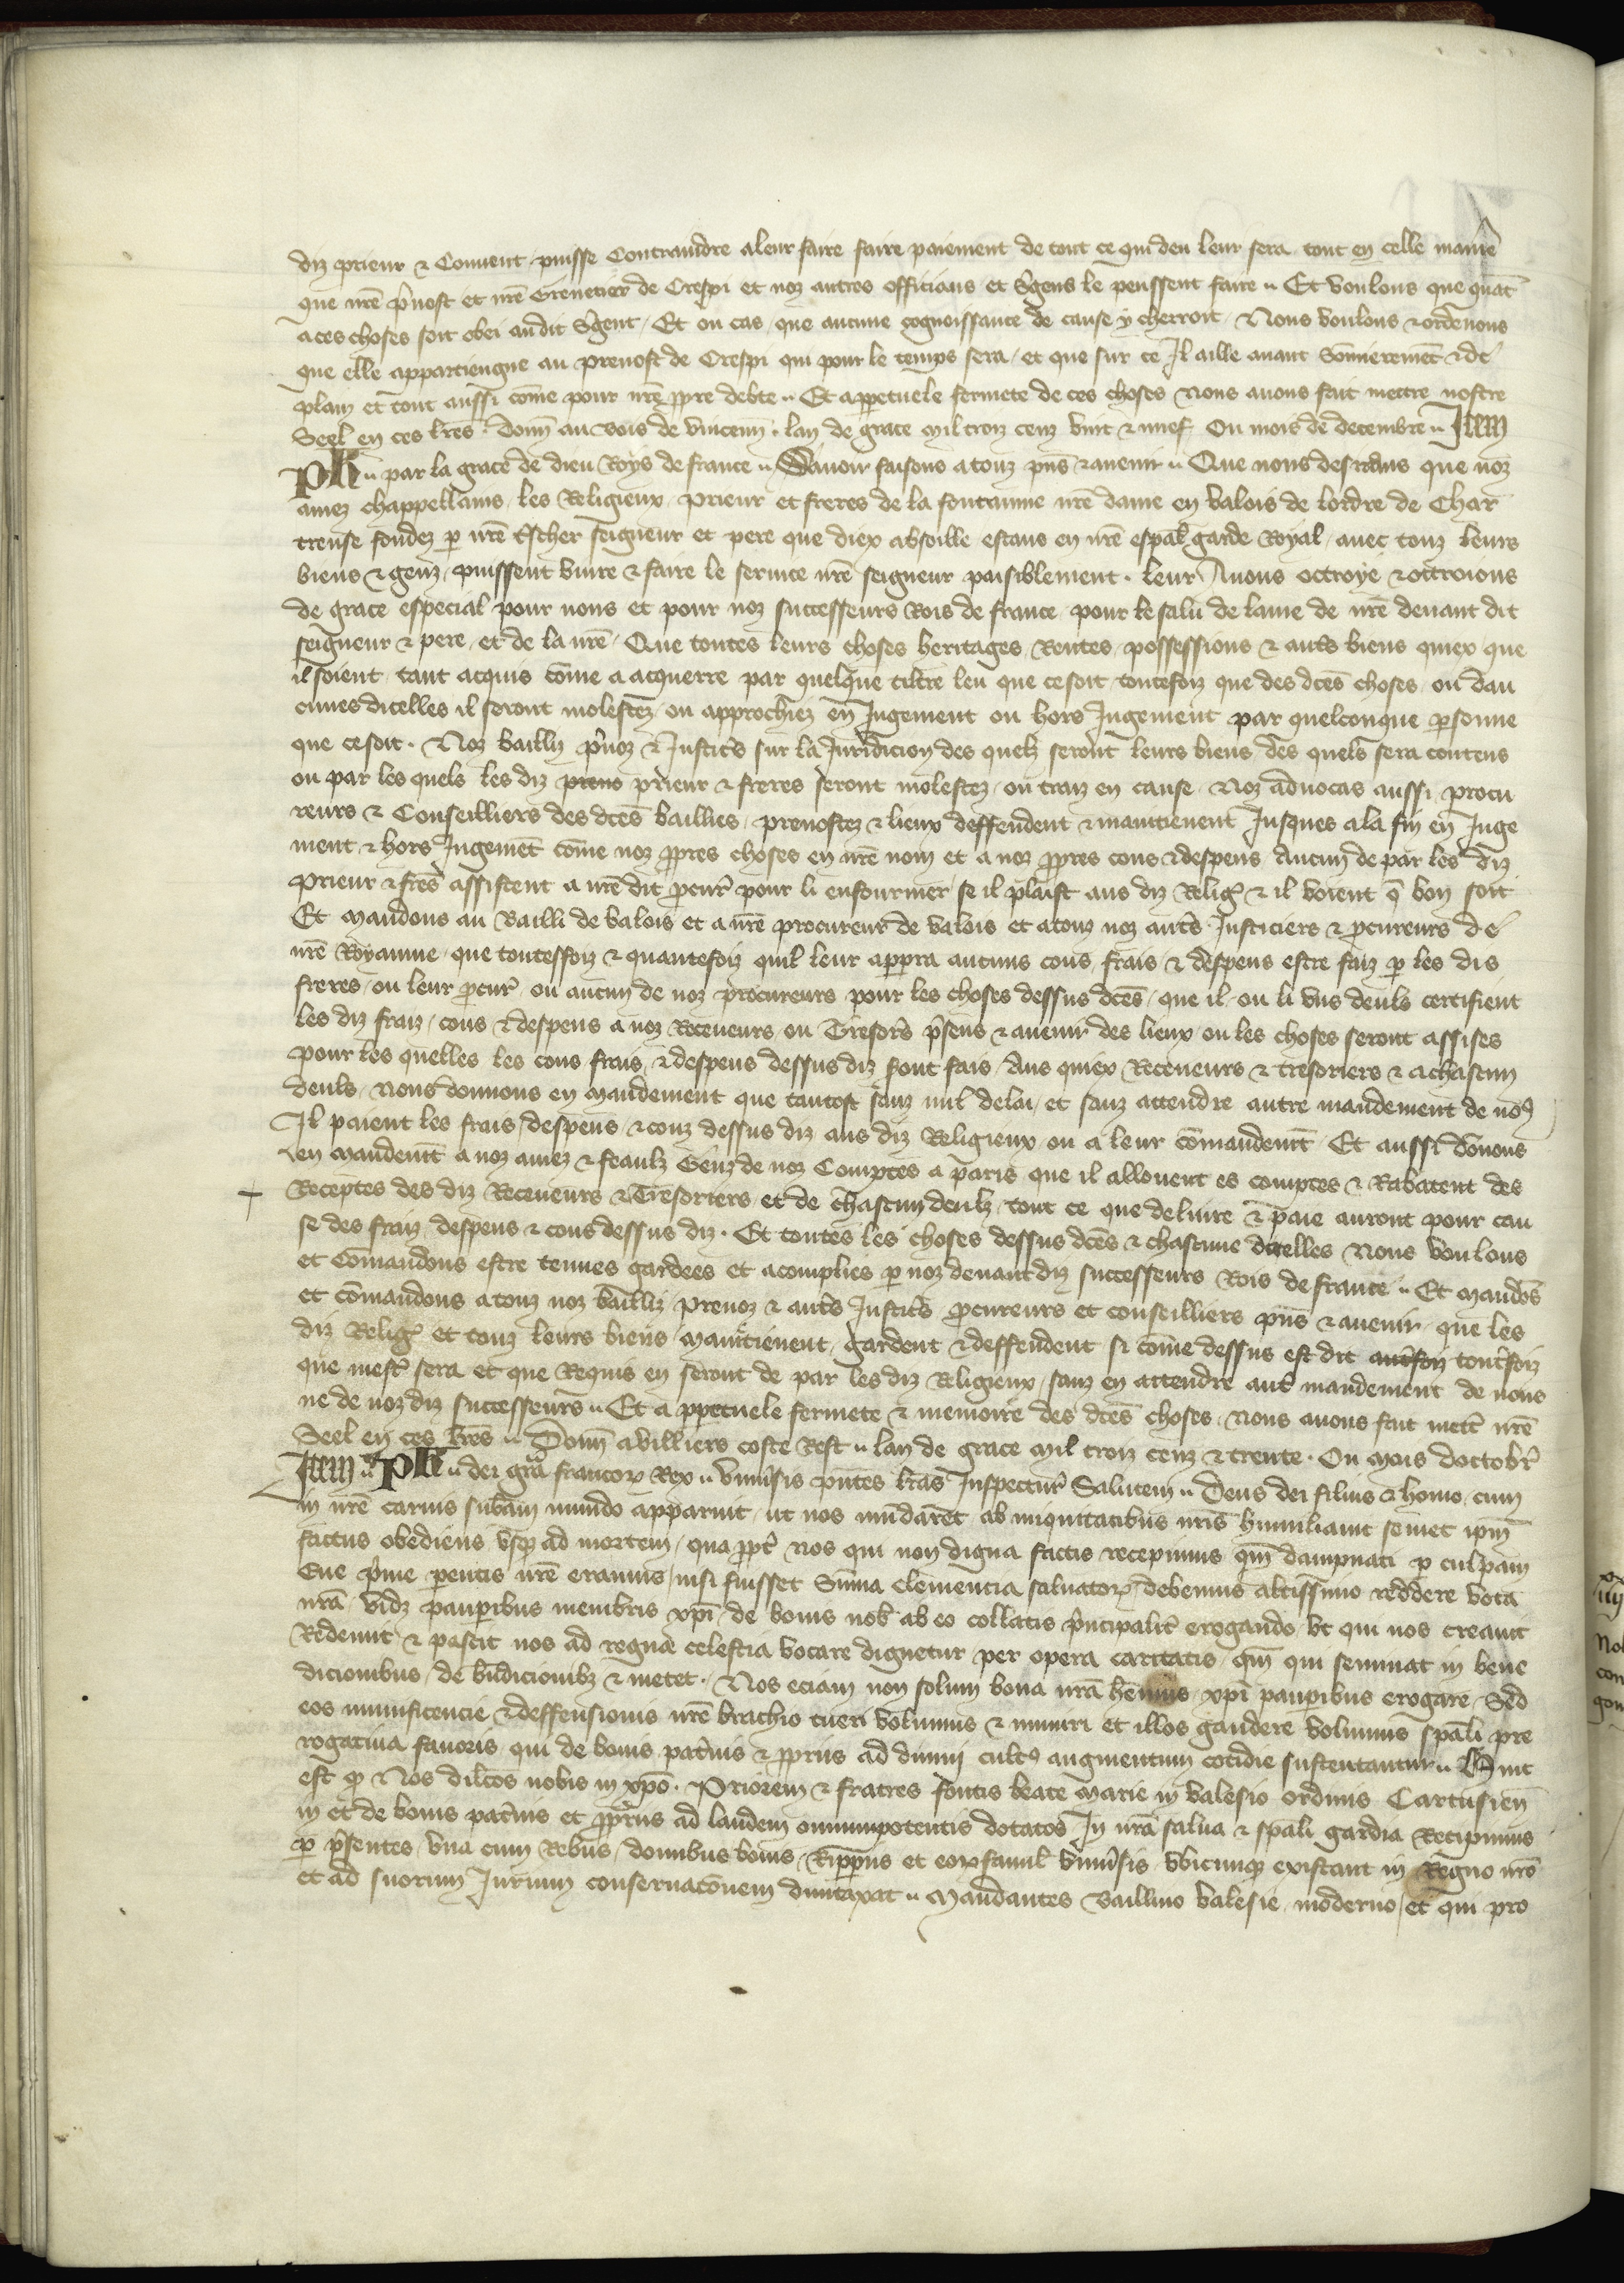 diz prieur & Couuent puisse Contraindre a leur faire faire paiement de tout ce qui deu leur sera tout en celle maniẽ
que nr̃e p̃uost et nr̃e Grenetier de Crespi et noz autres officiaus et s̃gens le peussent faire Et voulons que quãt
a ces choses soit obei audit s̃gent Et ou cas que aucune cognoissance de cause y cherroit Nous voulons & ordenons
que elle appartiengne au preuost de Crespi qui pour le temps sera et que sur ce Il aille auant som̃ieremẽt & de
plain et tout aussi com̃e pour nr̃e ꝓpre debte Et a ꝑpetuele fermete de ces choses Nous auons fait mettre nostre
Seel en ces lr̃es Donñ au bois de vincenn lan de grace mil troiz cenz vint & nuef Ou mois de decembre Item
Ph par la grace de dieu Roys de france Sauoir faisons a touz pñs & auenir Que nous desirans que noz
amez chappellains les Religieux prieur et freres de la fontainne nr̃e dame en valois de lordre de Char
treuse fondez ꝑ nr̃e t̃scher seigneur et pere que diex absoille estans en nr̃e espal̃ garde Royal auec touz leurs
biens & genz puissent viure & faire le seruice nr̃e seigneur paisiblement leur Auons octroye & octroions
de grace especial pour nous et pour noz successeurs Rois de france pour le salu de lame de nr̃e deuant dit
seigneur & pere et de la nr̃e Que toutes leurs choses heritages Rentes possessions & aut̃s biens quiex que
il soient tant acquis com̃e a acquerre par quelque tiltre leu que ce soit toutefoiz que des dc̃es choses ou dau
cunes dicelles il seront molestez ou approchiez en Jugement ou hors Jugement par quelconque ꝑsonne
que ce soit Noz bailliz p̃uoz & Justic̃s sur la Juridicion des quelz seront leurs biens des quels sera contens
ou par les quels les diz prieur & freres seront molestez ou traiz en cause Noz aduocas aussi procu
reurs & Conseilliers des dc̃es baillies preuostez & lieux deffendent & maintienent Jusques a la fin en Juge
ment & hors Jugemẽt com̃e noz ꝓpres choses en nr̃e nom et a noz ꝓpres cous & despens Aucun de par les diz
prieur & fr̃es assistent a nr̃e dit ꝓcur̃ pour li enfourmer se il plaist aus diz Relig̃ & il voient q̃ bon soit
Et mandons au Bailli de valois et a nr̃e procureur de valois et a touz noz aut̃s Justiciers & ꝓcureurs de
nr̃e Royaume que toutesfoiz & quantefoiz quil leur apꝑra aucuns cous frais & despens estre faiz ꝑ les dis
freres ou leur ꝓcur̃ ou aucun de noz procureurs pour les choses dessus dc̃es que il ou li vns deuls certifient
les diz fraiz cous & despens a noz Receueurs ou Tresors̃ p̃sens & auenir des lieux ou les choses seront assises
pour les quelles les cous frais & despens dessus diz sont fais Aus quiex Receueurs & tresoriers & a chascun
deuls nous donnons en mandement que tantost sanz nul delai et sanz attendre autre mandement de noꝰ
Il paient les frais despens & couz dessus diz aus diz Religieux ou a leur com̃andemt̃ Et aussi dõnons
en mandemt̃ a noz amez & feaulz Genz de noz Comptes a paris que il allouent es comptes & Rabatent des
Receptes des diz Receueurs & Tresoriers et de chascun deulz tout ce que deliure & paie auront pour cau
se des fraiz despens & cous dessus diz Et toutes les choses dessus dc̃es & chascune dicelles Nous voulons
et Com̃andons estre tenues gardees et acomplies ꝑ noz deuant diz successeurs Rois de france Et mandõs
et com̃andons a touz noz bailliz preuoz & aut̃s Justic̃s ꝓcureurs et conseilliers pñs & auenir que les
diz Relig̃ et touz leurs biens maintienent gardent & deffendent si com̃e dessus est dit toutes̃foiz
que mest̃ sera et que Requis en seront de par les diz Religieux sanz en attendre aut̃ mandement de nous
ne de noz diz successeurs Et a ꝑpetuele fermete & memoire des dc̃es choses Nous auons fait mett̃ nr̃e
Seel en ces lr̃es Donñ a villiers coste Rest lan de grace mil troiz cenz & trente Ou mois doctobr̃
Item Ph dei gr̃a francoꝝ Rex vniu̾sis pñtes lr̃as Inspectur̃ Salutem Deus dei filius & homo cum
in nr̃e carnis subam̃ mundo apparuit ut nos mũdaret ab iniquitatibus nr̃is humiliauit semet ipm̃
factus obediens vsqꝫ ad mortem qua ꝓpt̃ nos qui non digna factis recepimus qm̃ dampnati ꝑ culpam
Eue p̃me ꝑentis nr̃e eramus nisi fuisset Sum̃a clemencia saluatoꝝ debemus altissimo reddere vota
nr̃a vidꝫ pauꝑibus membris xp̃i de bonis nob̃ ab eo collatis p̃ncipalit̃ erogando vt qui nos creauit
Redemit & pascit nos ad regna celestia vocare dignetur per opera caritatis qm̃ qui seminat in bene
dicionibus de bñdicionibꝫ & metet Nos eciam non solum bona nr̃a xp̃i pauꝑibus erogare Sed
eos munificencie & deffensionis nr̃e brachio tueri volumus & muniri et illos gaudere volumus spãli pre
rogatiua fauoris qui de bonis pat̃nis & ꝓpriis ad diuini cultꝰ augmentum cotidie sustentantur Hinc
est qꝫ Nos dilc̃os nobis in xp̃o Priorem & fratres fontis beate marie in valesio ordinis Cartusien̄
in et de bonis pat̃nis et ꝓpriis ad laudem omnipotentis dotatos In nr̃a salua & spãli gardia Recipimus
ꝑ p̃sentes vna cum Rebus domibus bonis et eoꝝ famil̃ vniu̾sis vbicumqꝫ existant in Regno nr̃o
et ad suorum Jurium conseruacõnem dumtaxat Mandantes Baillino valesie moderno et qui pro